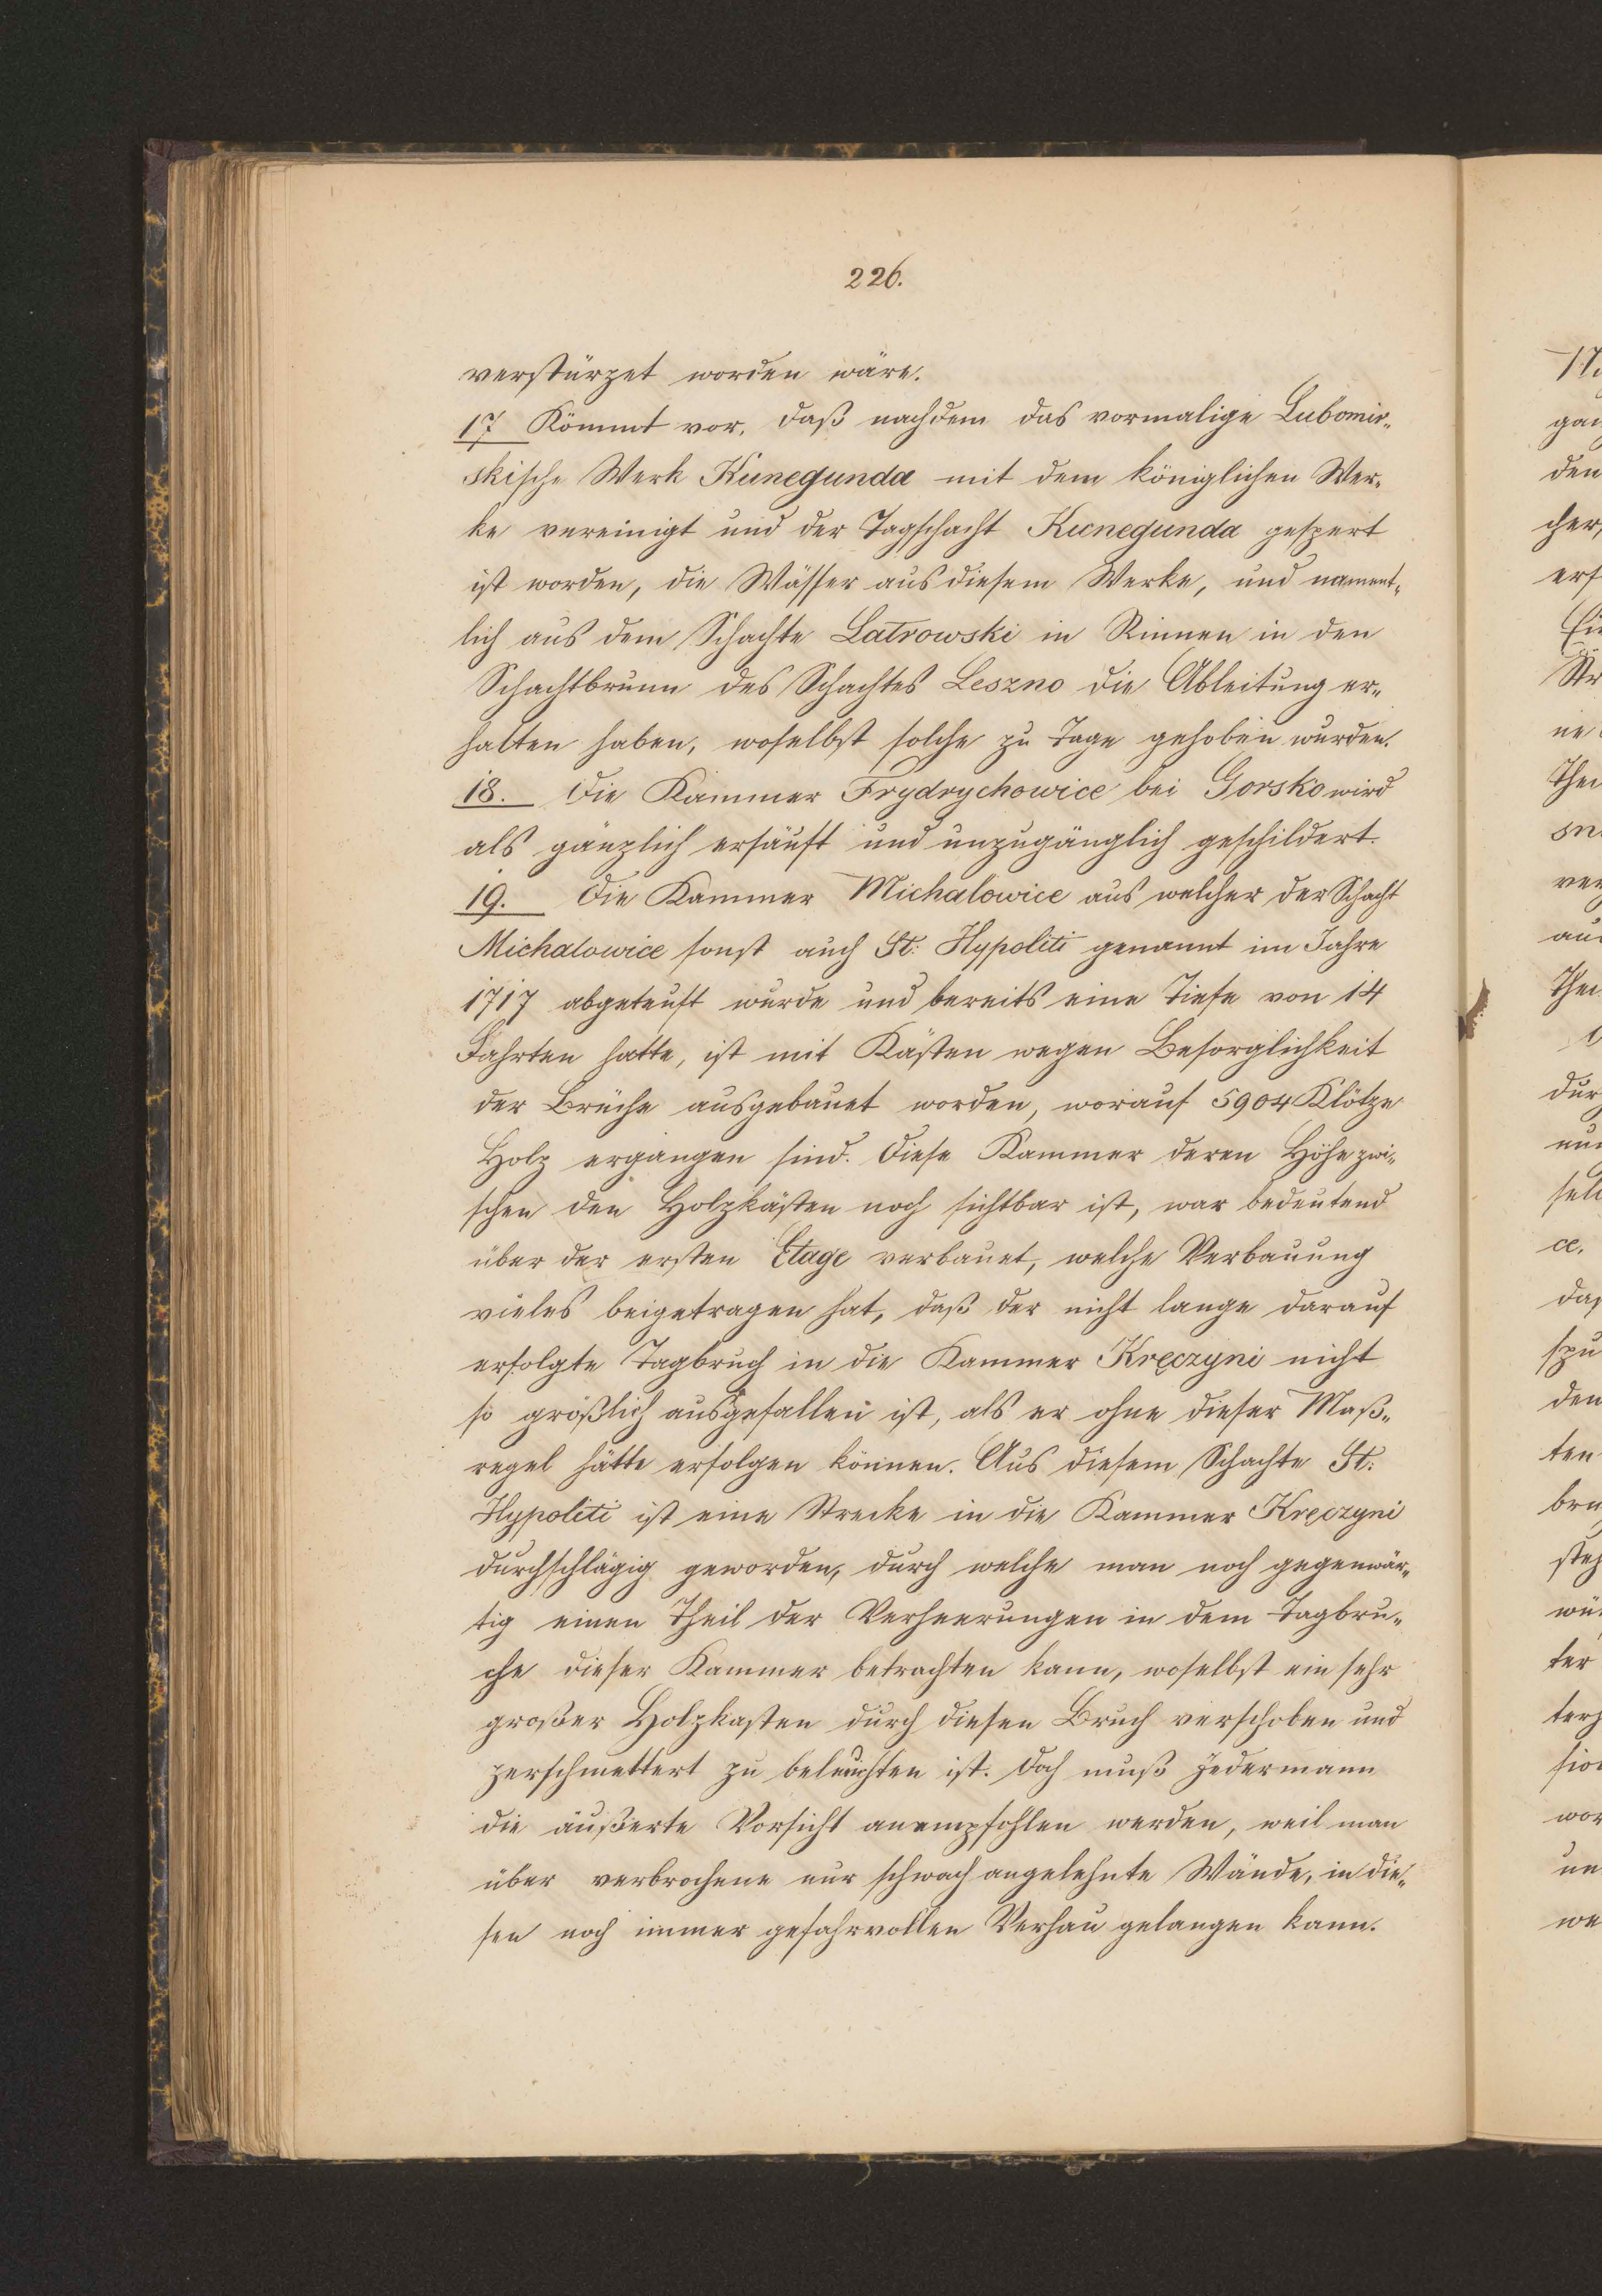 226.
verstürzet worden wäre.
17 Kömmt vor, daß nachdem das vormalige Lubomir„
skische Werk Kunegunda mit dem königlichen Wer„
ke vereinigt und der Tagschacht Kunegunda gespert
ist worden, die Wässer aus diesem Werke, und nament„
lich aus dem Schachte Latrowski in Rinnen in den
Schachtbrunn des Schachtes Leszno die Ableitung er„
halten haben, woselbst solche zu Tage gehoben wurden.
18. Die Kammer Frydrychowice bei Gorsko wird
als gänzlich ersäuft und unzugänglich geschildert.
19. Die Kammer Michalowice aus welcher der Schacht
Michalowice sonst auch St: Hypoliti genannt im Jahre
1717 abgeteuft wurde und bereits eine Tiefe von 14
Fahrten hatte, ist mit Kästen wegen Besorglichkeit
der Brüche ausgebauet worden, worauf 5904 Klötze
Holz ergangen sind. Diese Kammer deren Höhe zwi„
schen den Holzkästen noch sichtbar ist, war bedeutend
über der ersten Etage verbauet, welche Verbauung
vieles beigetragen hat, daß der nicht lange darauf
erfolgte Tagbruch in die Kammer Kręczyni nicht
so größlich ausgefallen ist, als er ohne dieser Maß„
regel hätte erfolgen können. Aus diesem Schachte St:
Hypoliti ist eine Strecke in die Kammer Kręczyni
durchschlägig geworden, durch welche man noch gegenwär„
tig einen Theil der Verheerungen in dem Tagbru„
che dieser Kammer betrachten kann, woselbst ein sehr
großer Holzkasten durch diesen Bruch verschoben und
zerschmettert zu beleuchten ist. Doch muß Jedermann
die äußerte Vorsicht anempfohlen werden, weil man
über verbrochene nur schwach angelehnte Wände, in die„
sen noch immer gefahrvollen Verhau gelangen kann.